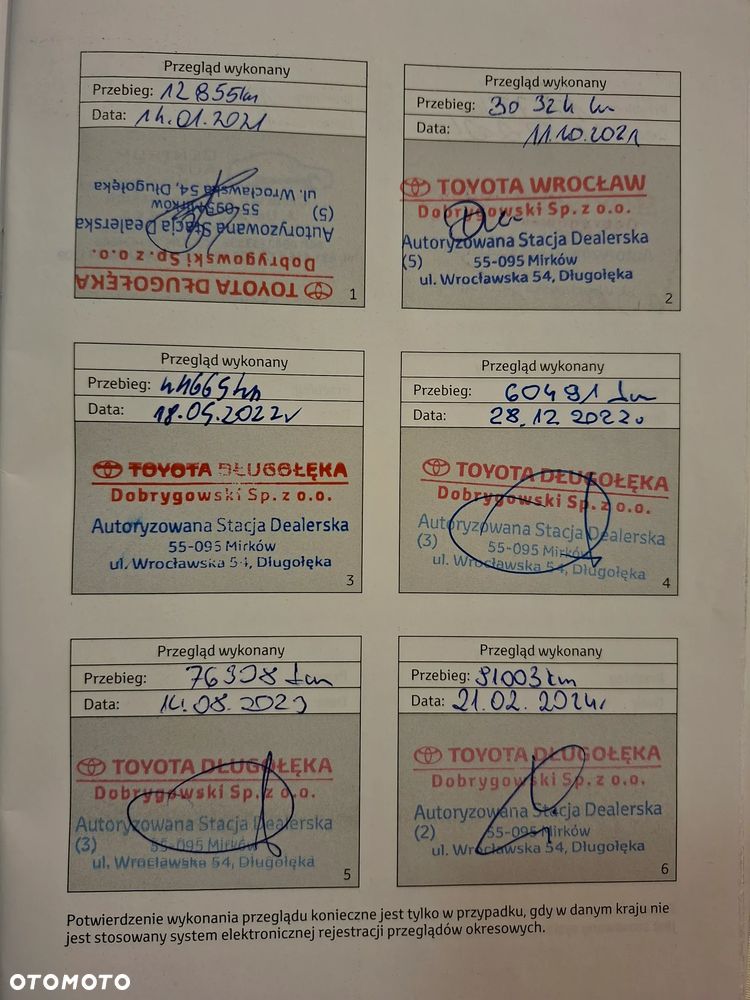 Przegląd wykonany
Przebieg: 12 855km
Data: 14.01.2021
TOYOTA DŁUGOŁĘKA
Dobrygowski Sp. z o.o.
Autoryzowana Stacja Dealerska
(5) 55-095 Mirków
ul. Wrocławska 54, Długołęka
1
Przegląd wykonany
Przebieg: 30 324 km
Data: 11.10.2021
TOYOTA WROCŁAW
Dobrygowski Sp. z o.o.
Autoryzowana Stacja Dealerska
(5) 55-095 Mirków
ul. Wrocławska 54, Długołęka
2
Przegląd wykonany
Przebieg:
Data: 18.05.2022r
TOYOTA DŁUGOŁĘKA
Dobrygowski Sp. z o.o.
Autoryzowana Stacja Dealerska
55-095 Mirków
ul. Wrocławska 54, Długołęka
3
Przegląd wykonany
Przebieg: 60491 km
Data: 28.12.2022
TOYOTA DŁUGOŁĘKA
Dobrygowski Sp. z o.o.
Autoryzowana Stacja Dealerska
(3) 55-095 Mirków
ul. Wrocławska 54, Długołęka
4
Przegląd wykonany
Przebieg: 76398 km
Data: 14.08.2023
TOYOTA DŁUGOŁĘKA
Dobrygowski Sp. z o.o.
Autoryzowana Stacja Dealerska
(3) 55-095 Mirków
ul. Wrocławska 54, Długołęka
5
Przegląd wykonany
Przebieg: 91003 km
Data: 21.02.2024r
TOYOTA DŁUGOŁĘKA
Dobrygowski Sp. z o.o.
Autoryzowana Stacja Dealerska
(2) 55-095 Mirków
ul. Wrocławska 54, Długołęka
6
Potwierdzenie wykonania przeglądu konieczne jest tylko w przypadku, gdy w danym kraju nie
jest stosowany system elektronicznej rejestracji przeglądów okresowych.
OTOMOTO